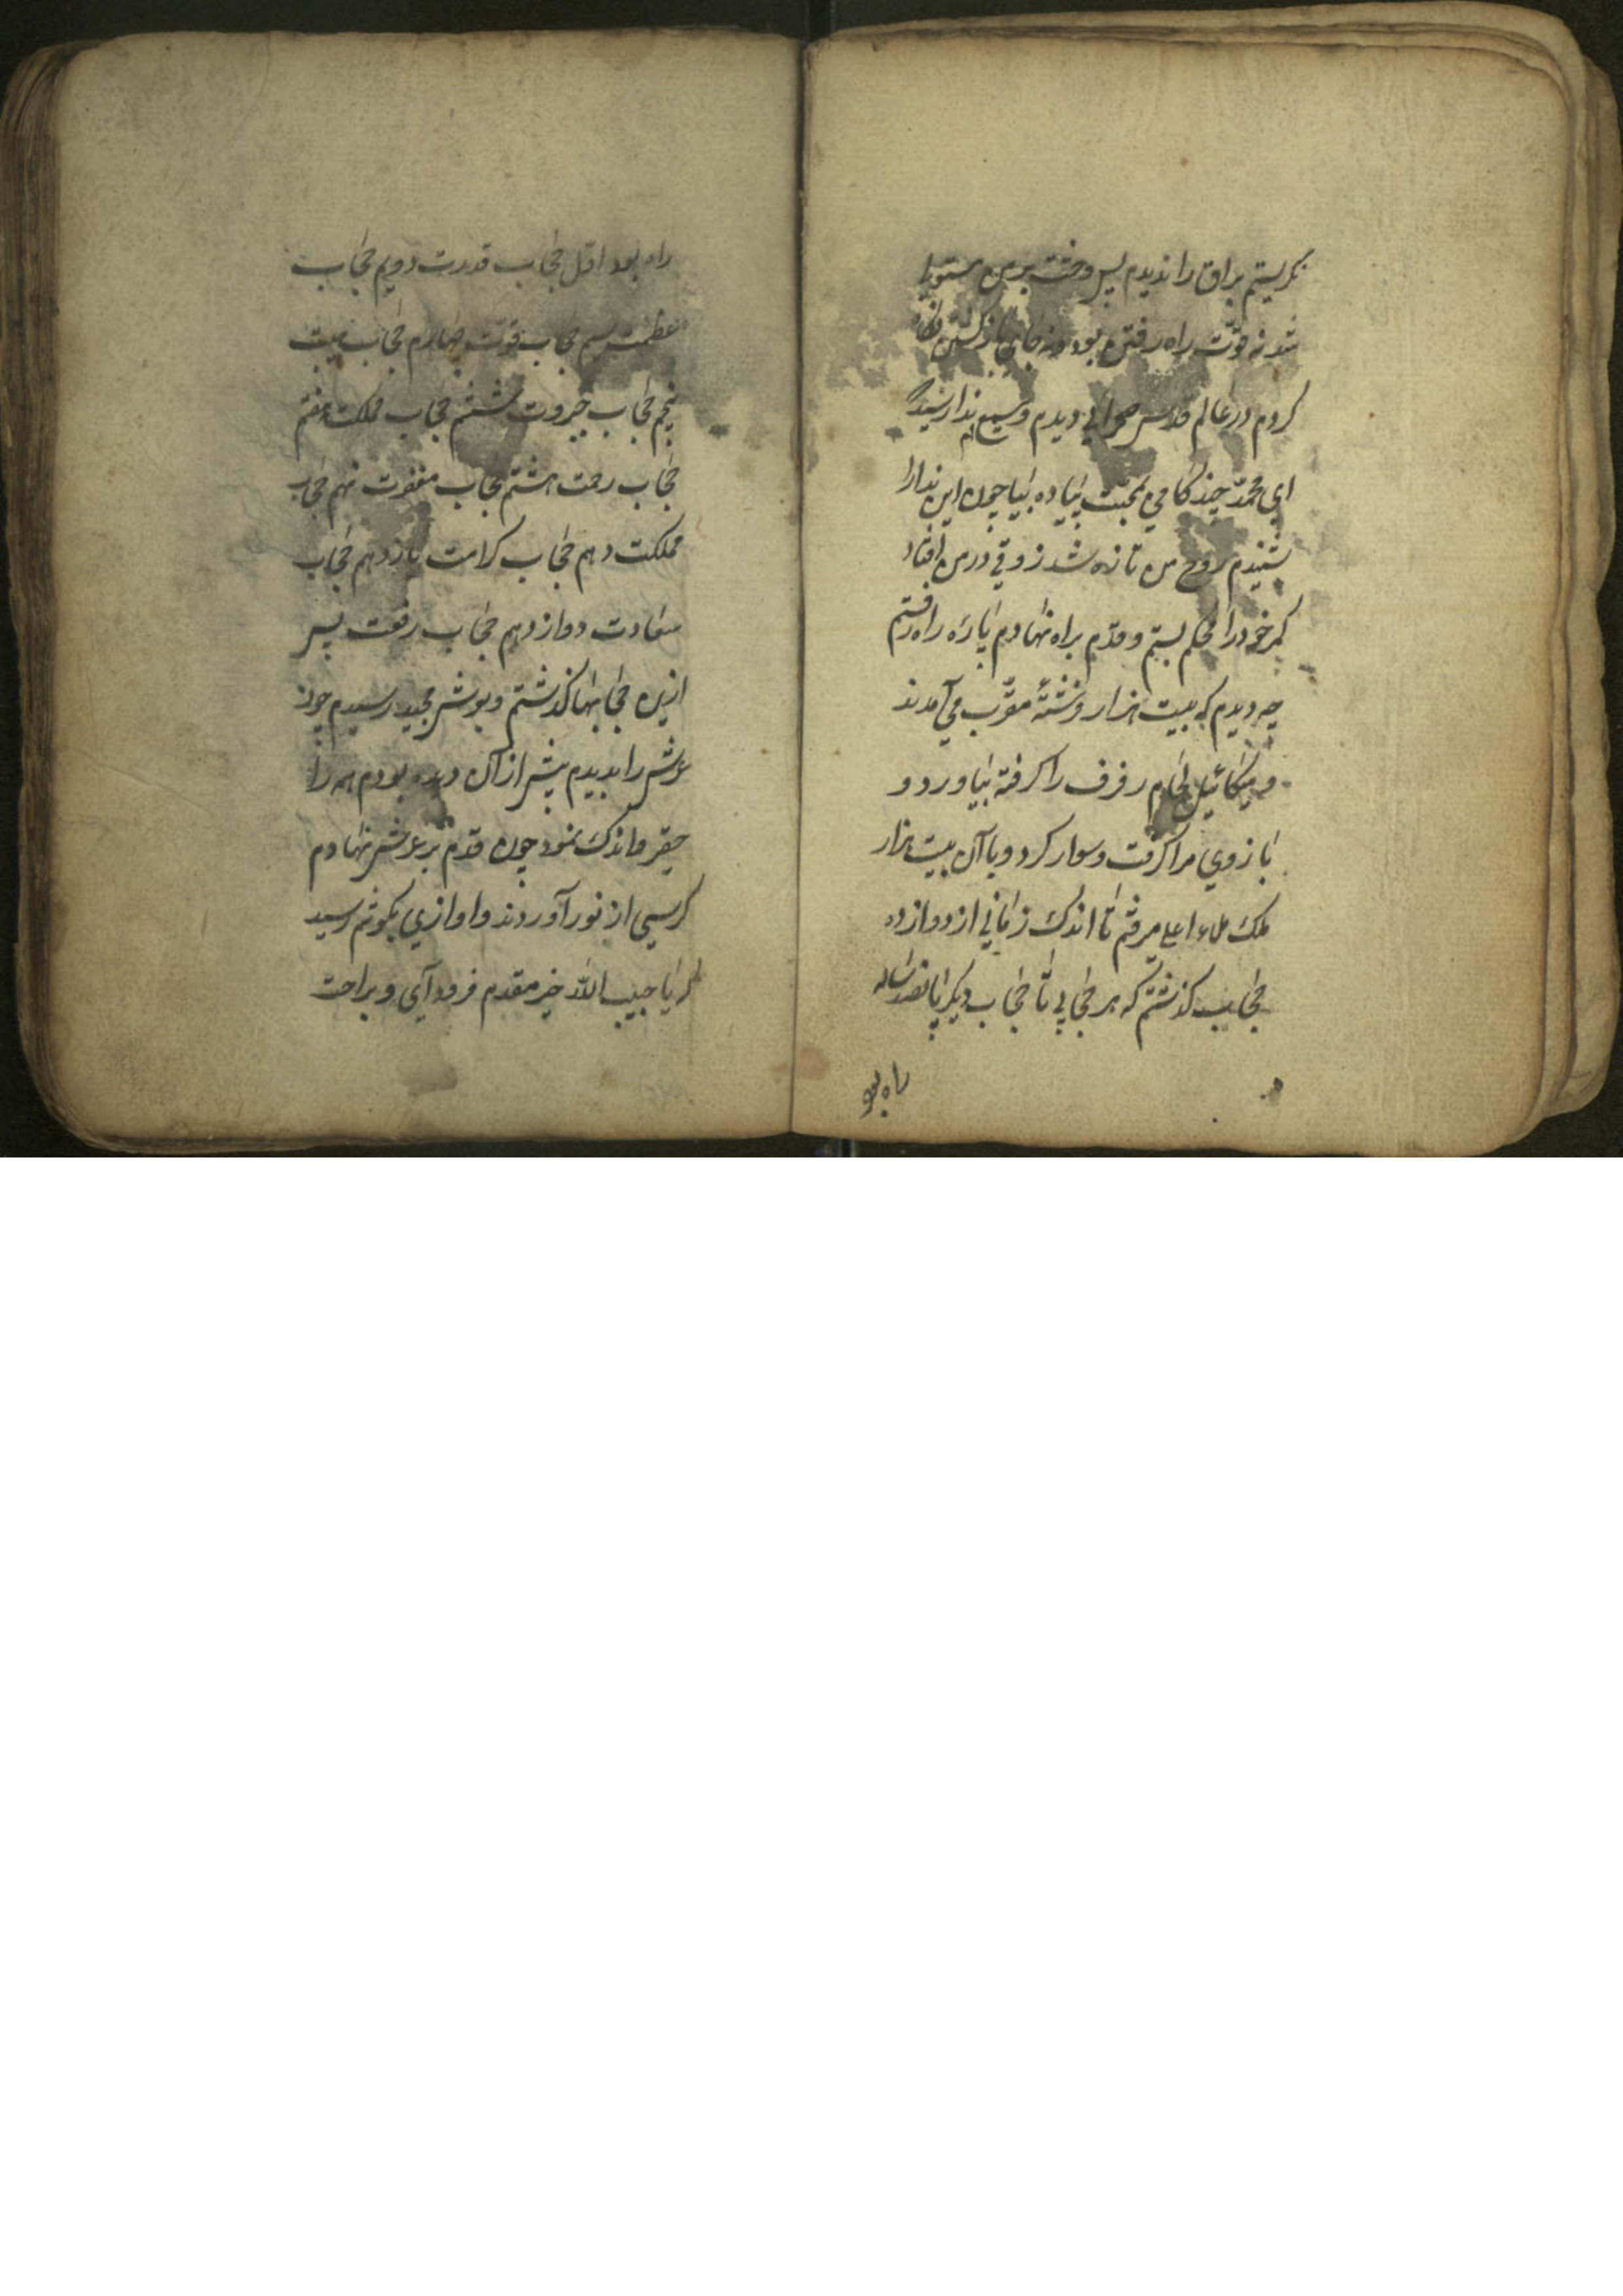 نکریستم براق را ندیدم پس وحشت بر من مستولی
شد نه قوّت راه رفتن بود و نه جای باز کشتن
کردم در عالم قدس صحرایی دیدم وسیع ندا رسید که
ای محمّد چند کامی بمحبّت پیاده بیا چون این ندا را
شنیدم روح من تازه شد ذوقی در من افتاد
کمر خود را محکم بستم و قدم براه نهادم پاره راه رفتم
چه دیدم که بیست هزار فرشتهٔ مقرّب می آمدند
و میکائیل لجام رفرف را کرفته بیاورد و
بازوی مرا کرفت و سوار کرد و با آن بیست هزار
ملک ملاء اعلی میرفتم تا اندک زمانی از دوازده
حجاب کذشتم که هر حجابی تا حجاب دیکر پانصد ساله
راه بود
راه بود اوّل حجاب قدرت دویم حجاب
عظمت سیم حجاب قوّت چهارم حجاب هیبت
پنجم حجاب جبروت ششم حجاب مملکت هفتم
حجاب رحمت هشتم حجاب مغفرت نهم حجاب
مملکت دهم حجاب کرامت یازدهم حجاب
سعادت دوازدهم حجاب رفعت پس
ازین حجابها کذشتم و بعرش مجید رسیدم چون
عرش را بدیدم پیش از آن دیده بودم همه را
حقیر و اندک نمود چون قدم بر عرش نهادم
کرسیی از نور آوردند و اوازی بکوشم رسید
که یا حبیب اللّه خیر مقدم فرود آی و براحت